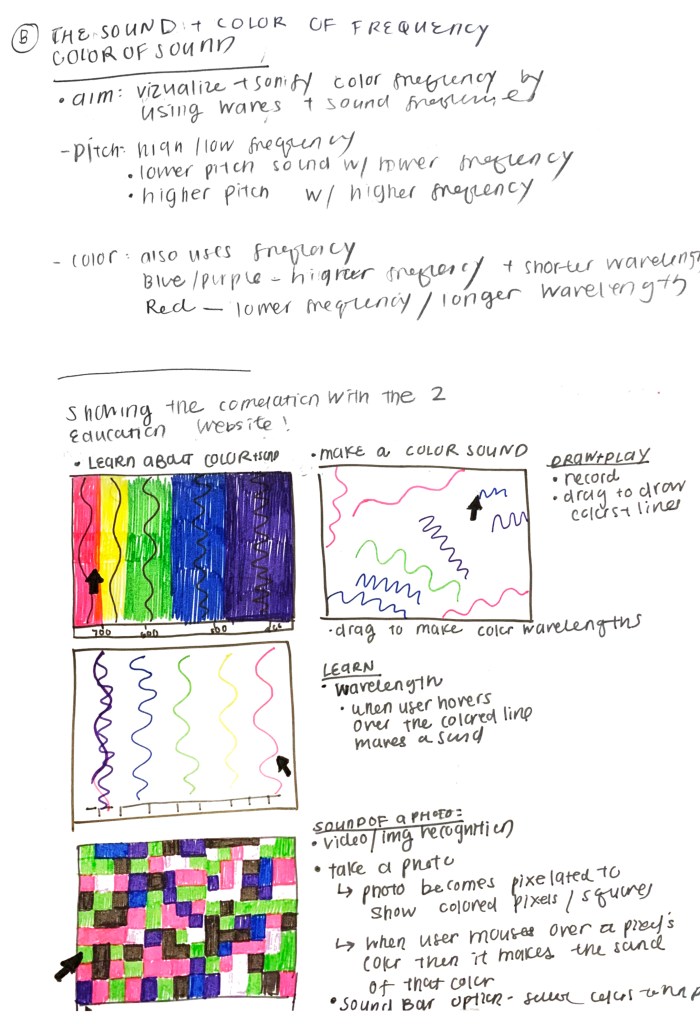 B THE SOUND + COLOR OF FREQUENCY
COLOR OF SOUND
• aim: vizualize + sonify color frequency by
using waves + sound
- pitch: high / low frequency
• lower pitch sound w/ lower frequency
• higher pitch w/ higher frequency
- color: also uses
Blue / purple - higher frequency + shorter
Red — lower frequency / longer wavelength
Showing the correlation with the 2
Education website!
• LEARN ABOUT COLOR +
• MAKE A COLOR SOUND
DRAW + PLAY
• record
• drag to draw
colors + lines
700 600 500
• drag to make color wavelengths
LEARN
• wavelength
• when user hovers
over the colored line
makes a sound
SOUND OF A PHOTO:
• video / img recognition
• take a photo
↳ photo becomes pixelated to
show colored pixels / squares
↳ when user mouses over a pixel's
color then it makes the sound
of that color
• Sound Bar option -